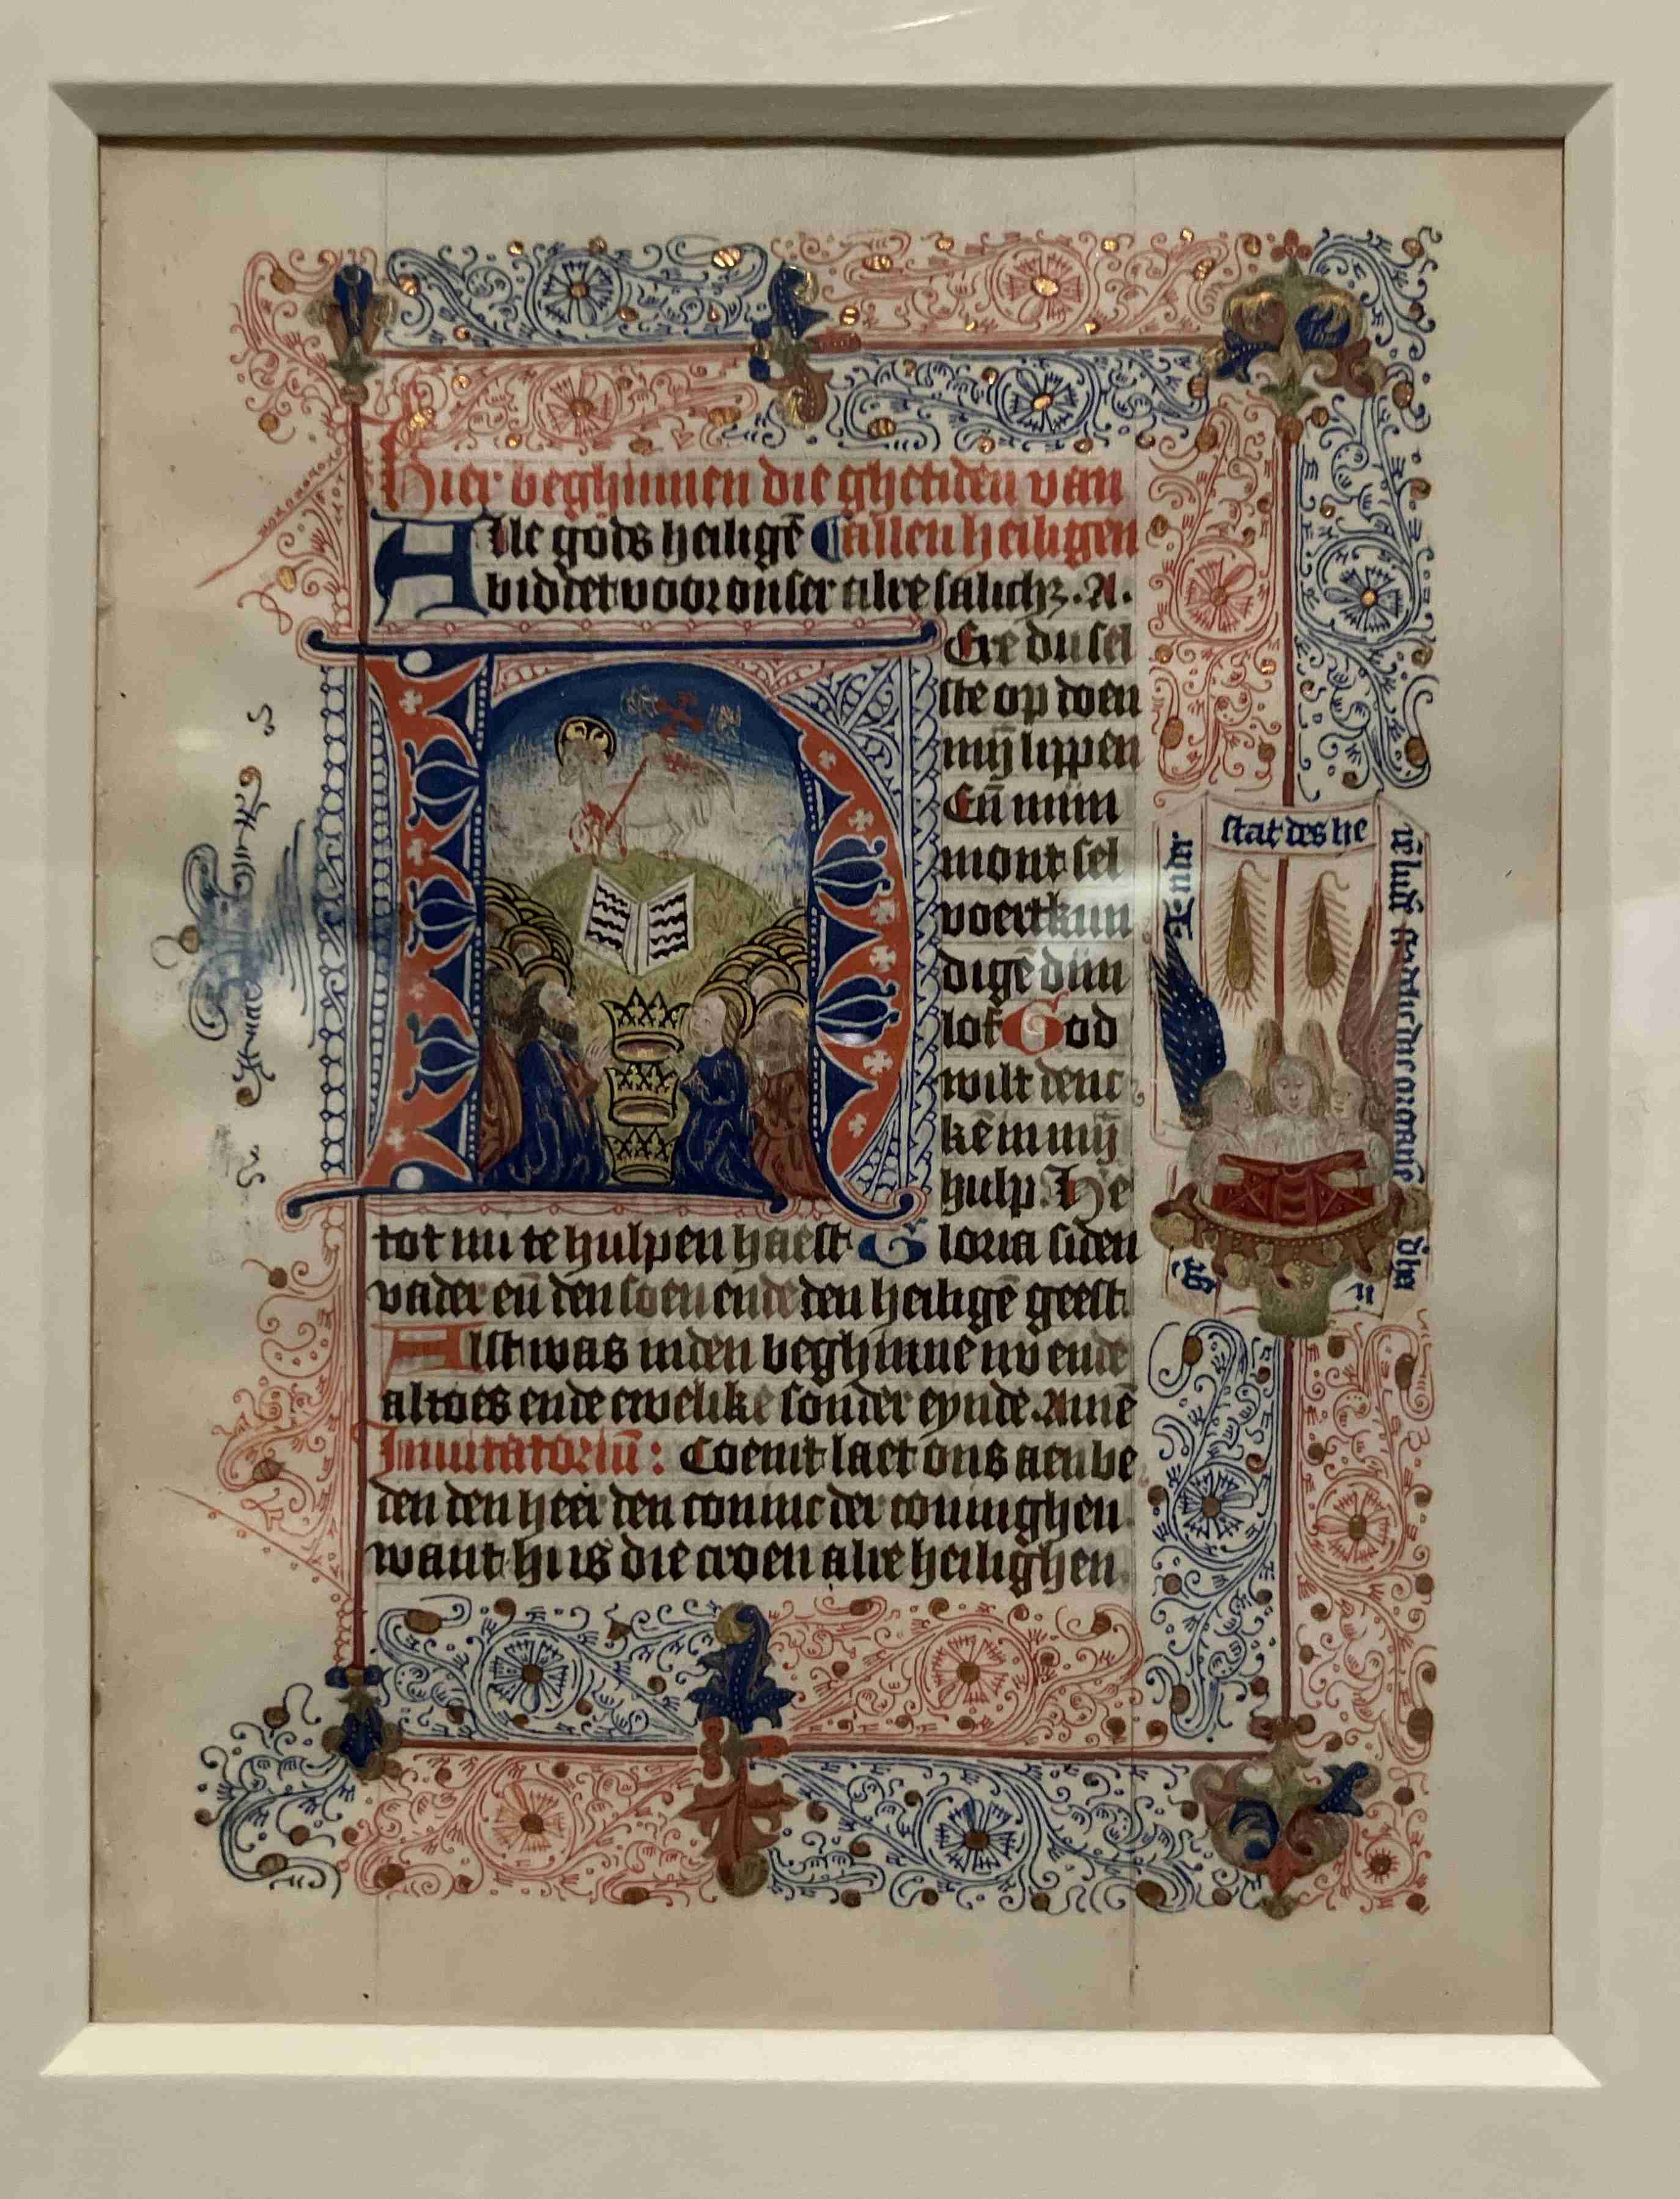 Hier beghinnen die ghetiden van
Alle gods heilighē allen heiligen
biddet voor onser alre salichz. A.
Ere du sel
ste op doen
mijn lippen
Eñ minn
mont sel
voertkun
digē dijn
lof God
wilt denc
kē in mijn
hulp. He
tot mi te hulpen haest Gloria si den
vader eñ den soen ende den heiligē geest.
Als t was inden beghinne nv ende
altoes ende ewelike sonder eynde. Amē
Inuitatoriū: Coemt laet ons aenbe
den den heer den coninc der coninghen
want hi is die croen alre heilighen
stat des he